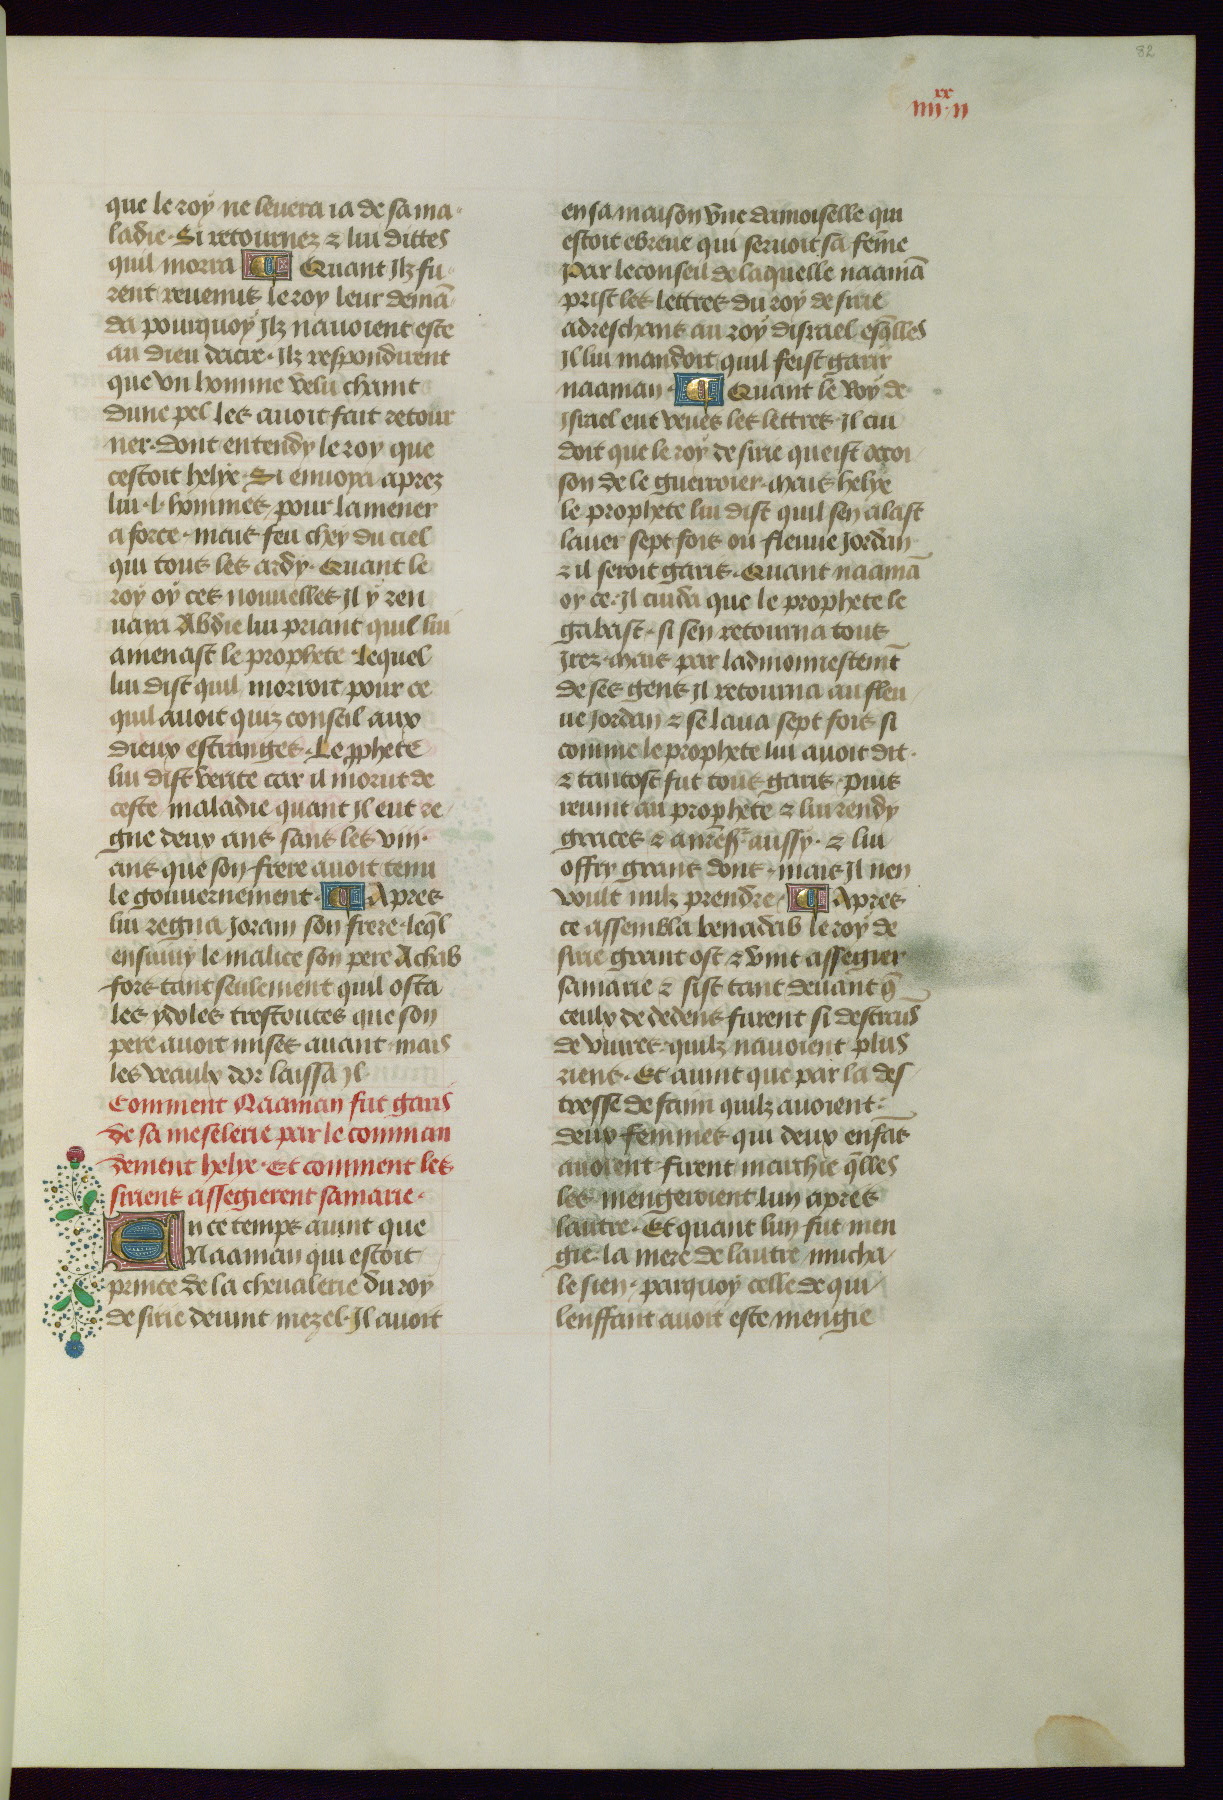 82
xx
iiii·ii
que le roy ne leuera ia de sa ma
ladie· Si retournez ⁊ lui dittes
quil morra ¶ Quant Ilz fu
rent reuenus le roy leur demā
da pourquoy Ilz nauoient este
au dieu dacre· Ilz respondirent
que vn homme velu chaint
dune pel les auoit fait retour
ner· dont entendy le roy que
cestoit helye· Si enuoya aprez
lui ·l· hommes pour lamener
a force· mais feu chey du ciel
qui tous les ardy· Quant le
roy oy ces nouuelles Il y ren
uaya Abdie lui priant quil lui
amenast le prophete· Lequel
lui dist quil morroit pour ce
quil auoit quiz conseil aux
dieux estranges· Le ꝓphete
lui dist verite car il morut de
ceste maladie quant Il eut re
gne deux ans sans les viii·
ans que son frere auoit tenu
le gouuernement· ¶ Apres
lui regna Joram son frere· leq̄l
ensuiuy le malice son pere Achab
fors tant seulement quil osta
les ydoles trestoutes que son
pere auoit mises auant mais
les veaulx dor laissa Il
Comment Naaman fut garis
de sa meselerie par le comman
dement helye· Et comment les
siriens assegierent samarie·
En ce temps auint que
Naaman qui estoit
prince de la cheualerie du roy
de sirie deuint mezel· Il auoit
en sa maison vne damoiselle qui
estoit ebreue qui seruoit sa fēme
Par le conseil de laquelle naamā
prist les lettres du roy de sirie
adreschans au roy disrael esq̄lles
Il lui mandoit quil feist garir
naaman· ¶ Quant le Roy de
Israel eut veues les lettres· Il cui
doit que le roy de sirie queist occoi
son de le guerroier· mais helye
le prophete lui dist quil sen alast
lauer sept fois ou fleuue Jordan
⁊ il seroit garis· Quant naamā
oy ce· Il cuida que le prophete le
gabast· si sen retourna tous
Irez· mais par ladmonnestemt̄
de ses gens Il retourna au fleu
ue Jordan ⁊ se laua sept fois si
comme le prophete lui auoit dit·
⁊ tantost fut tous garis· puis
reuint au prophete ⁊ lui rendy
graces ⁊ aussy· ⁊ lui
offry grans dons· mais Il nen
voult nulz prendre· ¶ Apres
ce assembla benadab le roy de
sirie grant ost ⁊ vint assegier
samarie ⁊ sist tant deuant q̄
ceulx de dedens furent si destrais
de viures quilz nauoient plus
riens· Et auint que par la des
tresse de faim quilz auoient·
deux femmes qui deux enfās
auoient firent marchie q̄lles
les mengeroient lun apres
lautre· Et quant lun fut men
gie· la mere de lautre mucha
le sien· parquoy celle de qui
lenffant auoit este mengie